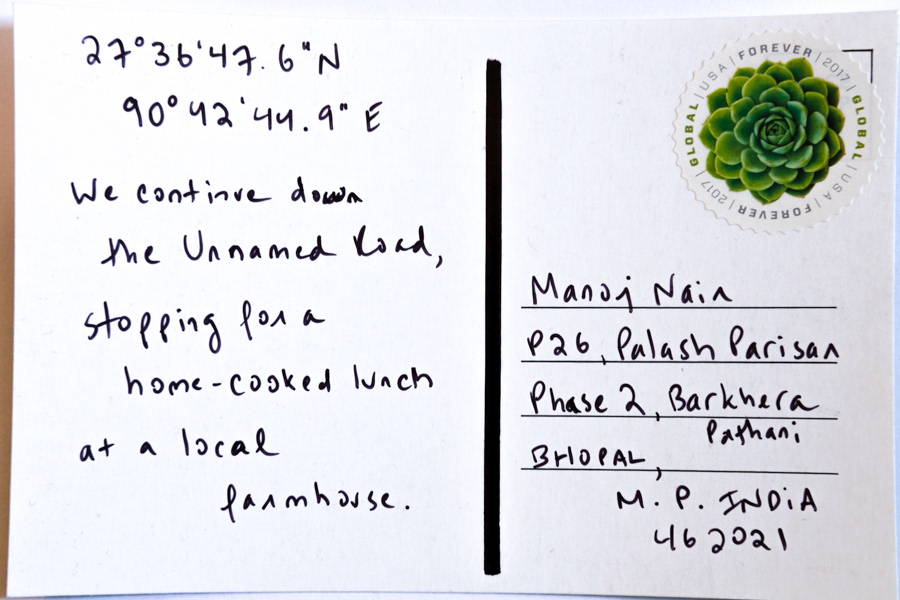 27°36'47.6"N
90°42'44.9" E
We continue down
the Unnamed Road,
stopping for a
home-cooked lunch
at a local
farmhouse.
GLOBAL | USA | FOREVER | 2017 | GLOBAL | USA | FOREVER | 2017 |
Manoj Nair
P26, Palash Parisar
Phase 2, Barkhera
Pathani
BHOPAL,
M. P. INDIA
462021